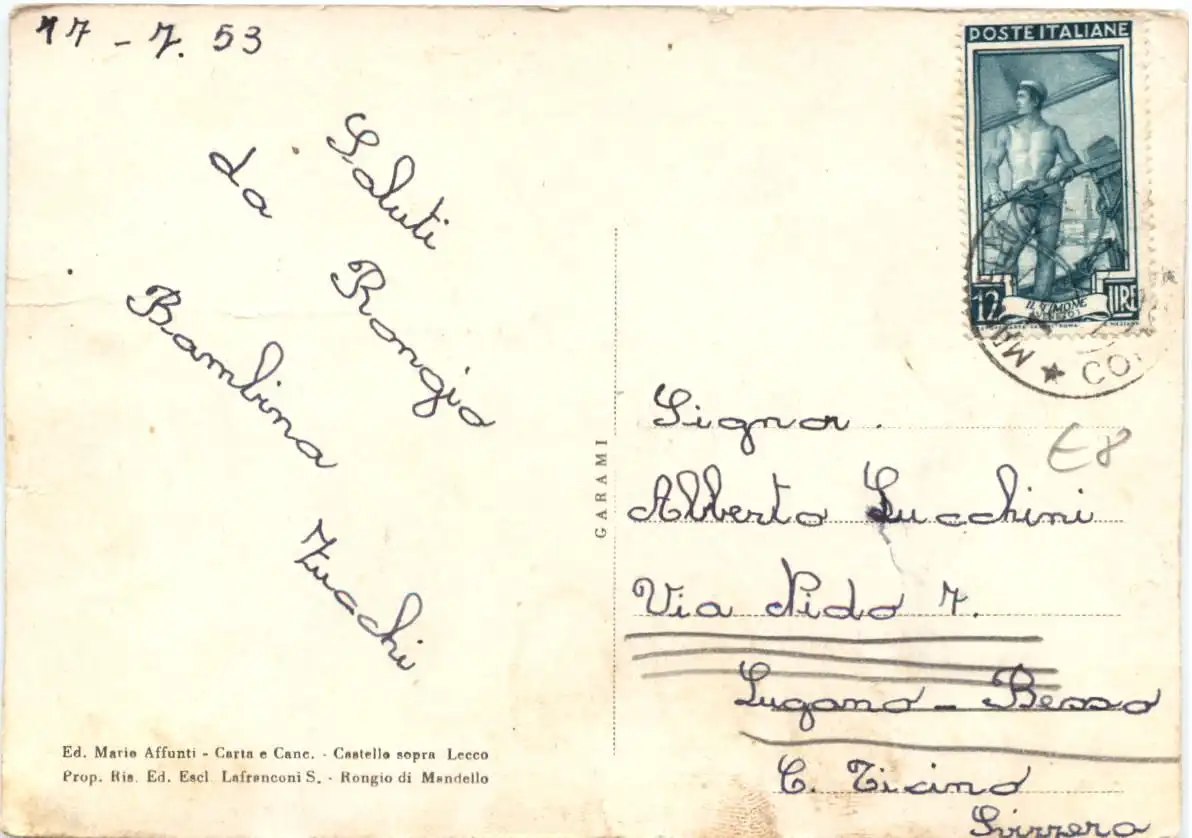 17 - 7. 53
Saluti
da Rongio
Bambina
Zucchi
Ed. Mario Affunti - Carta e Canc. - Castello sopra Lecco
Prop. Ris. Ed. Escl. Lafranconi S. - Rongio di Mandello
GARAMI
POSTE ITALIANE
12 LIRE
IL TIMONE
E8
Signor.
Alberto Lucchini
Via Nido 7.
Lugano - Besso
C. Ticino
Svizzera